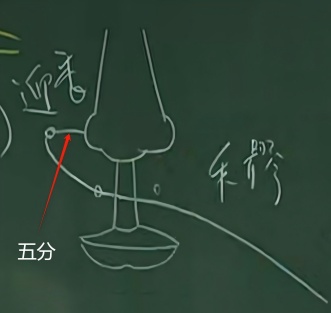 迎香
禾髎
五分